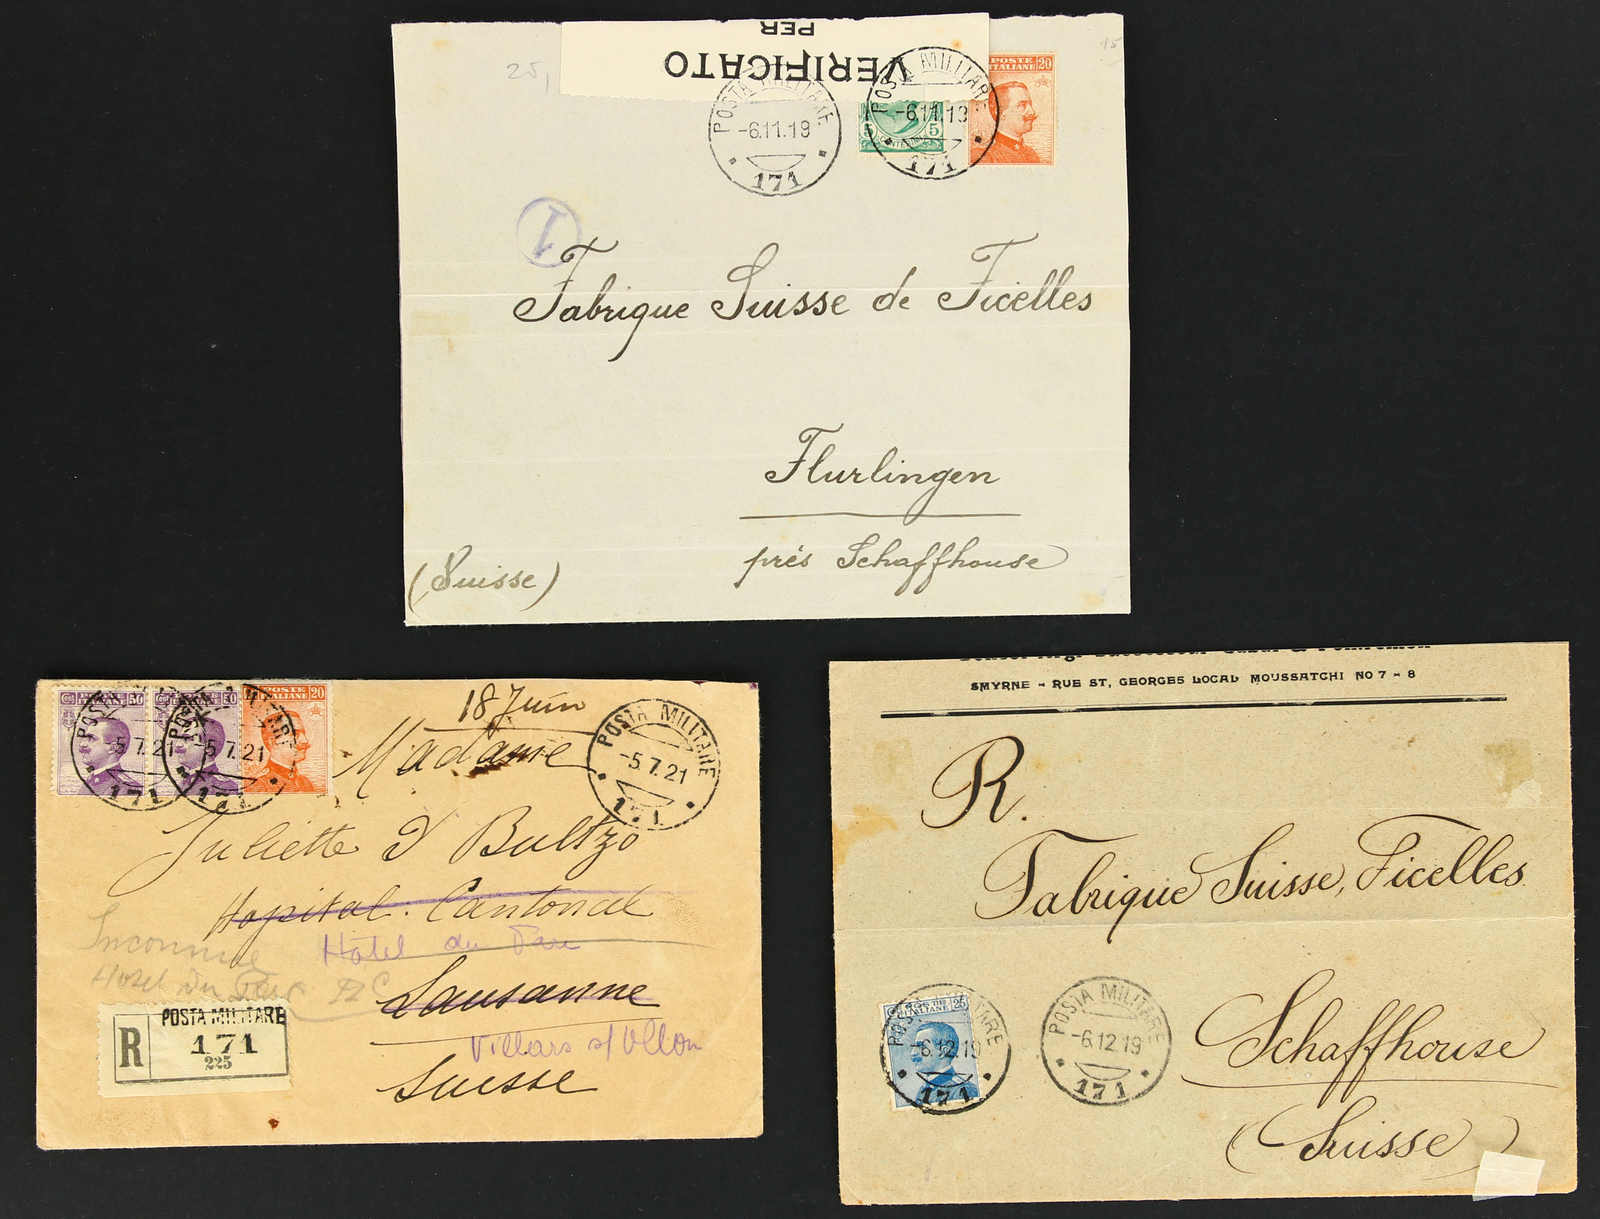 25,
15
VERIFICATO
PER
POSTE ITALIANE 20
5 5
POSTA MILITARE
-6.11.19
171
POSTA MILITARE
-6.11.19
171
1
Fabrique Suisse de Ficelles
Flurlingen
près Schaffhouse
(Suisse)
50
50
POSTE ITALIANE 20
POSTA MILITARE
-5.7.21
171
POSTA MILITARE
-5.7.21
171
18 Juin
POSTA MILITARE
-5.7.21
171
Madame
Juliette D Baltzo
Hopital Cantonal
Inconnue
Hotel du Parc
Hotel du Parc
Lausanne
Villars s/Ollon
Suisse
R POSTA MILITARE
171
225
SMYRNE - RUE ST, GEORGES LOCAL MOUSSATCHI NO 7 - 8
R.
Fabrique Suisse, Ficelles
Schaffhouse
(Suisse)
25
POSTA MILITARE
-6.12.19
171
POSTA MILITARE
-6.12.19
171